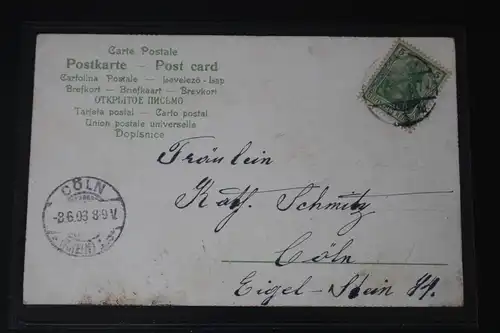 Carte Postale
Postkarte — Post card
Cartolina Postale — Levelező-Lap
Brefkort — Briefkaart — Brevkort
ОТКРЫТОЕ ПИСЬМО
Tarjeta postal — Carto postal
Union postale universelle
Dopisnice
Fräulein
Kath. Schmitz
Cöln
Eigel-Stein 84.
CÖLN
-8.6.03 8-9V.